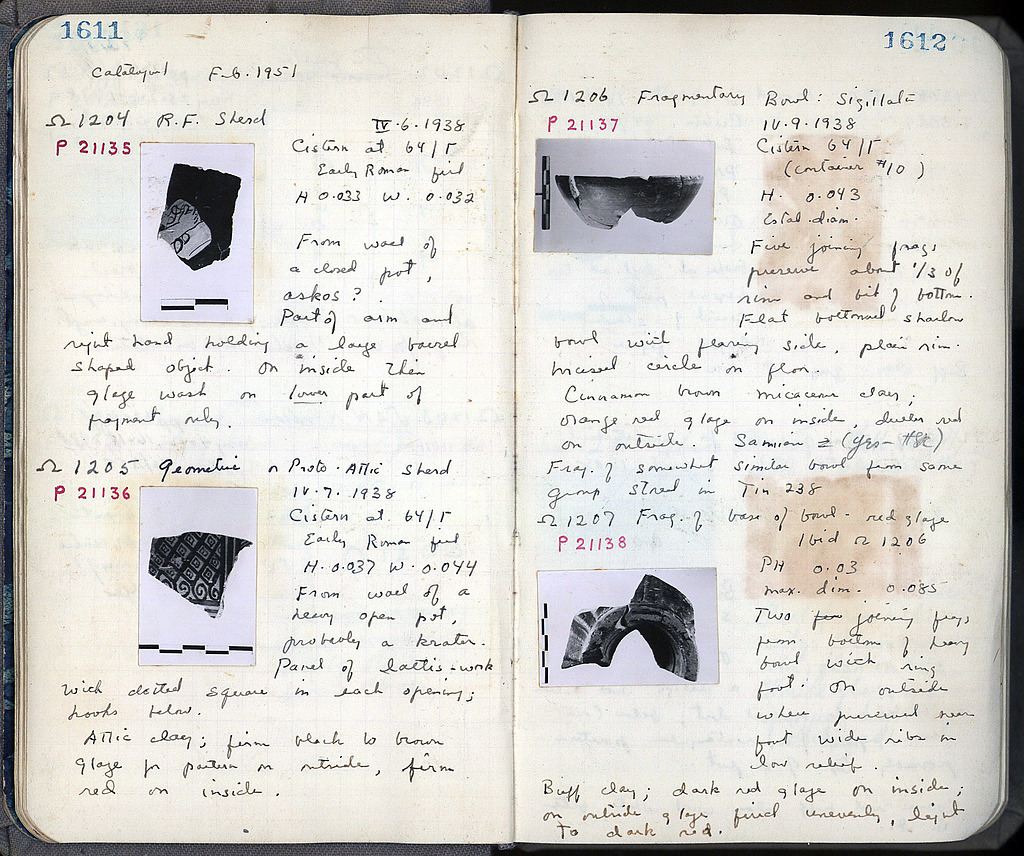 1611
Catalogued Feb. 1951
Ω 1204 R.F. Sherd
IV.6.1938
P 21135
Cistern at 64/Γ
Early Roman fill
H 0.033 W. 0.032
From wall of
a closed pot,
askos?.
Part of arm and
right hand holding a large barrel
shaped object. On inside thin
glaze wash on lower part of
fragment only.
Ω 1205 Geometric or Proto-Attic sherd
P 21136
IV.7.1938
Cistern at 64/Γ
Early Roman fill
H.0.037 W.0.044
From wall of a
heavy open pot,
probably a krater.
Panel of lattis-work
with dotted square in each opening;
hooks below.
Attic clay; firm black to brown
glaze for pattern on outside, firm
red on inside.
1612
Ω 1206 Fragmentary Bowl: Sigillata
P 21137
IV.9.1938
Cistern 64/Γ
(container #10)
H. 0.043
Estd.diam.
Five joining frags
preserve about 1/3 of
rim and bit of bottom.
Flat bottomed shallow
bowl with flaring side, plain rim.
Incised circle on floor.
Cinnamon brown micaceous clay;
orange red glaze on inside, duller red
on outside. Samian (yes-
Frag. of somewhat similar bowl from same
group stored in Tin 238
Ω 1207 Frag. of base of bowl - red glaze
P 21138
Ibid Ω 1206
PH 0.03
max. dim. 0.085
Two joining frags
from bottom of heavy
bowl with ring
foot. On outside
where preserved near
foot wide ribs in
low relief.
Buff clay; dark red glaze on inside;
on outside glaze fired unevenly, light
to dark red.